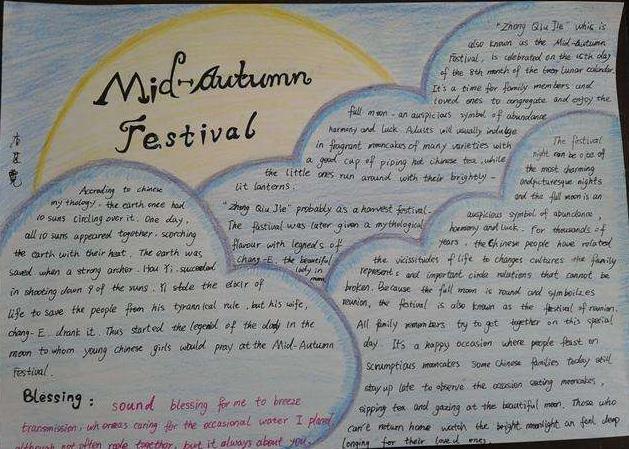 Mid-Autumn
Festival
"Zhong Qiu Jie" whic is
also known as the Mid-Autumn
Festival, is celebrated on the 15th day
of the 8th month of the lunar calendar.
It's a time for family members and
loved ones to congregate and enjoy the
full moon - an auspicious symbol of abundance
harmony and luck. Adults will usually indulge
in fragrant mooncakes of many varieties with
a good cup of piping hot chinese tea, while
the little ones run around with their brightly-
lit lanterns.
"Zhong Qiu Jie" probably as a harvest festival.
The fastival was later given a mythological
flavour with legneds of
Chang-E, the beautiful
lady in
moon
According to chinese
mythology, the earth once had
10 suns circling over it. One day,
all 10 suns appeared together, scorching
the earth with their heat. The earth was
saved when a strong archer. Hou Yi. succeeded
in shooting down 9 of the suns. Yi stole the elixir of
life to save the people from his tyrannical rule, but his wife,
chang-E. drank it. Thus started the legend of the lady in the
moon to whom young chinese girls would pray at the Mid-Autumn
Festival.
The festival
night can be one of
the most charming
andpicturesque nights
and the full moon is an
auspicious symbol of abundance,
harmony and luck. For thousands of
years, the Chinese people have related
the vicissitudes of life to changes cultures the family
represents and important circla relations that cannot be
broken. Because the full moon is round and symbolizes
reunion, the festival is also known as the festival of reunion.
All family members try to get together on this special
day. It's a happy occasion where people feast on
scrumptious mooncakes some chinese families today still
stay up late to observe the occasion eating mooncakes,
sipping tea and gazing at the beautiful moon. Those who
can't return home watch the bright moonlight an feel deep
longing for their loved ones.
Blessing: sound blessing for me to breeze
transmission, whereas caring for the occasional water I
although not often together, but it always about you.